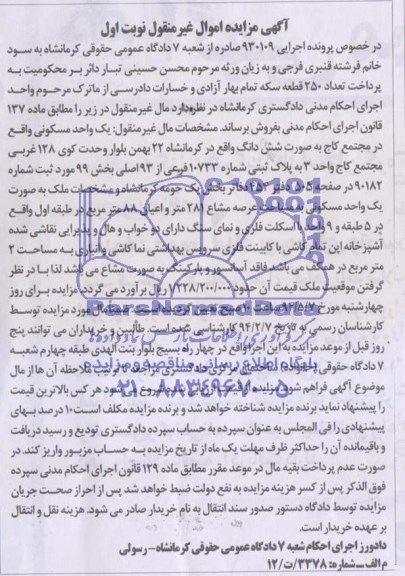 آگهی مزایده اموال غیرمنقول نوبت اول
در خصوص پرونده اجرایی ۹۳۰۱۰۹ صادره از شعبه ۷ دادگاه عمومی حقوقی کرمانشاه به سود
خانم فرشته قنبری فرجی و به زیان ورثه مرحوم محسن حسینی تبار دائر بر محکومیت به
پرداخت تعداد ۲۵۰ قطعه سکه تمام بهار آزادی و خسارات دادرسی از ماترک مرحوم واحد
اجرای احکام مدنی دادگستری کرمانشاه در نظر دارد مال غیرمنقول در زیر را مطابق ماده ۱۳۷
قانون اجرای احکام مدنی بفروش برساند. مشخصات مال غیرمنقول: یک واحد مسکونی واقع
در مجتمع کاج به صورت شش دانگ واقع در کرمانشاه ۲۲ بهمن بلوار وحدت کوی ۱۲۸ غربی
مجتمع کاج واحد ۳ به پلاک ثبتی شماره ۱۰۷۳۳ فرعی از ۹۳ اصلی بخش ۹۹ مورد ثبت شماره
۹۰۱۸۲ در صفحه ۵۰۵ دفتر ۴۵۳ دفاتر بخش یک حومه کرمانشاه و مشخصات ملک به صورت
یک واحد مسکونی به مساحت عرصه مشاع ۲۸۱ متر و اعیان ۸۸ متر مربع در طبقه اول واقع
در ۵ طبقه و ۹ واحد با اسکلت فلزی و نمای سنگ دارای دو خواب و هال و پذیرایی نقاشی شده
آشپزخانه اپن تمام کاشی با کابینت فلزی سرویس بهداشتی نما کاشی و انباری به مساحت ۲
متر مربع در همکف می باشد فاقد آسانسور و پارکینگ به صورت مشاع می باشد لذا با در نظر
گرفتن موقعیت ملک قیمت آن حدود ۷۲۲۸/۲۰۰/۰۰۰ ریال برآورد می گردد مزایده برای روز
چهارشنبه مورخ ۹۴/۵/۷ ساعت ۱۰ صبح تعیین گردیده است. اموال مورد مزایده توسط
کارشناسان رسمی به تاریخ ۹۴/۲/۷ کارشناسی شده است. طالبین و خریداران می توانند پنج
روز قبل از موعد مزایده به این اجرا واقع در چهار راه بسیج بلوار بنت الهدی طبقه چهارم شعبه
۷ دادگاه حقوقی کرمانشاه مجتمع مرکزی دادگستری مراجعه تا ترتیب ملاحظه آن ها از مال
موضوع آگهی فراهم شود. مزایده از قیمت ارزیابی شده شروع می شود هر کس بالاترین قیمت
را پیشنهاد نماید برنده مزایده شناخته خواهد شد و برنده مزایده مکلف است ۱۰ درصد بهای
پیشنهادی را فی المجلس به عنوان سپرده به حساب سپرده دادگستری تودیع و رسید دریافت
و باقیمانده آن را حداکثر ظرف مهلت یک ماه از تاریخ مزایده به حساب مزبور واریز کند. در
صورت عدم پرداخت بقیه مال در موعد مقرر مطابق ماده ۱۲۹ قانون اجرای احکام مدنی سپرده
فوق الذکر پس از کسر هزینه مزایده به نفع دولت ضبط خواهد شد پس از احراز صحت جریان
مزایده توسط دادگاه دستور صدور سند انتقال به نام خریدار صادر می شود. هزینه نقل و انتقال
بر عهده خریدار است.
دادورز اجرای احکام شعبه ۷ دادگاه عمومی حقوقی کرمانشاه - رسولی
م الف ـ شماره: ۱۲/ت/۳۳۷۸
ParsNamadData
پایگاه اطلاع رسانی مناقصه و مزایده
۰۲۱-۸۸۳۴۹۶۷۰-۵